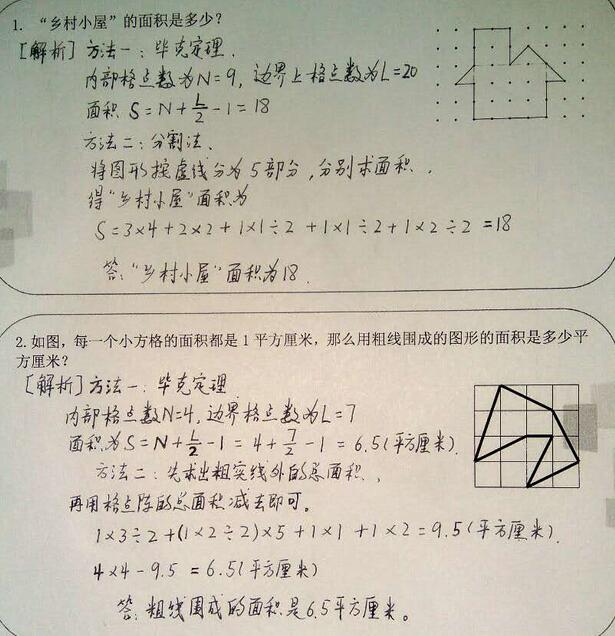 1. “乡村小屋”的面积是多少?
[解析] 方法一：毕克定理.
内部格点数为N=9, 边界上格点数为L=20
面积 S=N+L/2-1=18
方法二：分割法、
将图形按虚线分为5部分,分别求面积.
得“乡村小屋”面积为
S=3×4+2×2+1×1÷2+1×1÷2+1×2÷2=18
答:“乡村小屋”面积为18.
2. 如图，每一个小方格的面积都是1平方厘米，那么用粗线围成的图形的面积是多少平
方厘米？
[解析] 方法一. 毕克定理
内部格点数N=4, 边界格点数为L=7
面积为S=N+L/2-1=4+7/2-1=6.5(平方厘米).
方法二：先求出粗实线外的总面积、
再用格点阵的总面积减去即可。
1×3÷2+(1×2÷2)×5+1×1+1×2=9.5(平方厘米).
4×4-9.5=6.5(平方厘米)
答:粗线围成的面积是6.5平方厘米。